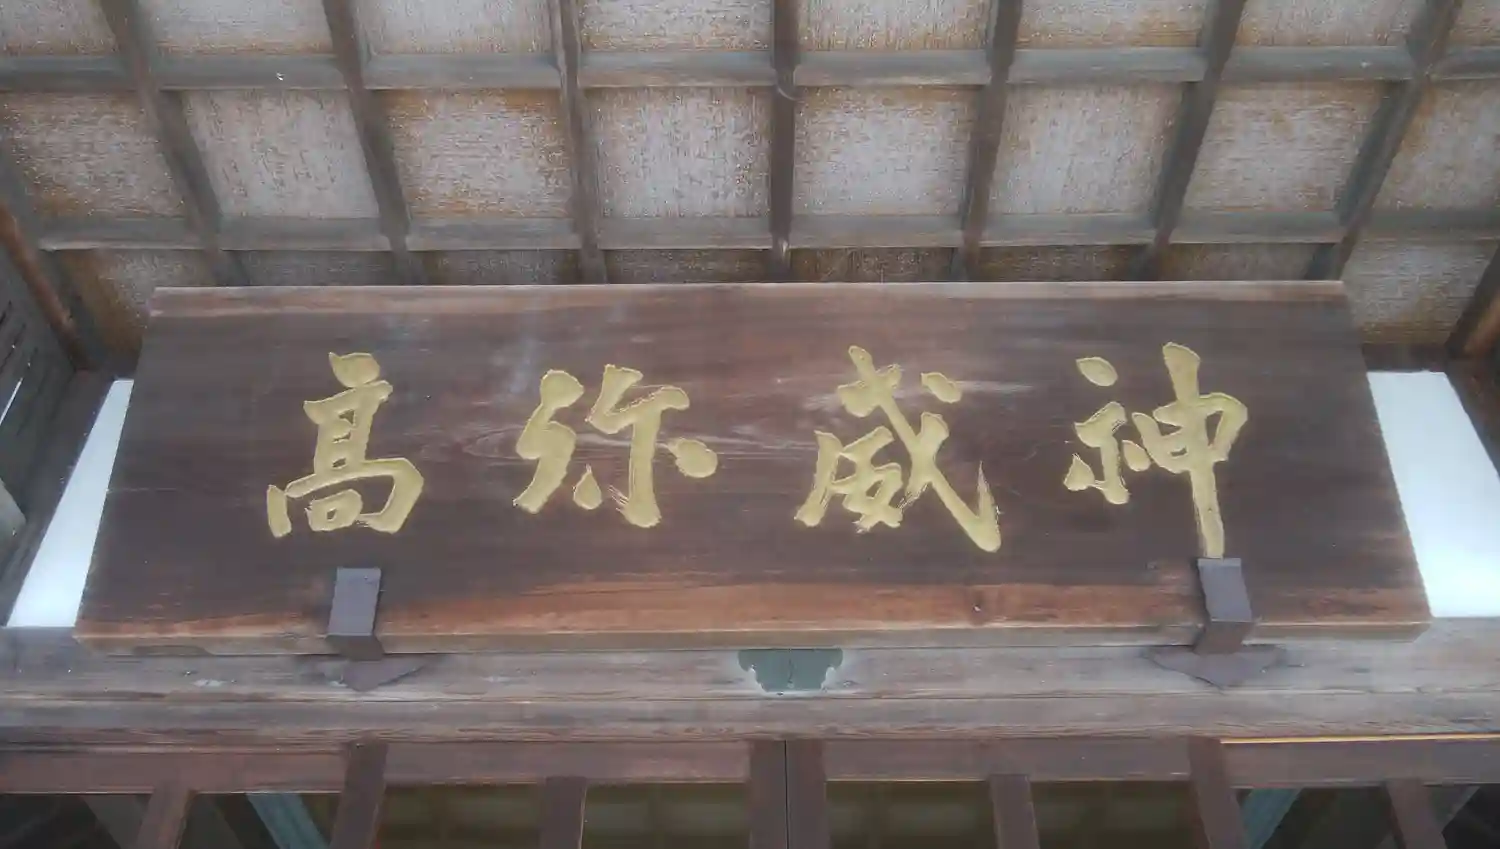 神威弥高